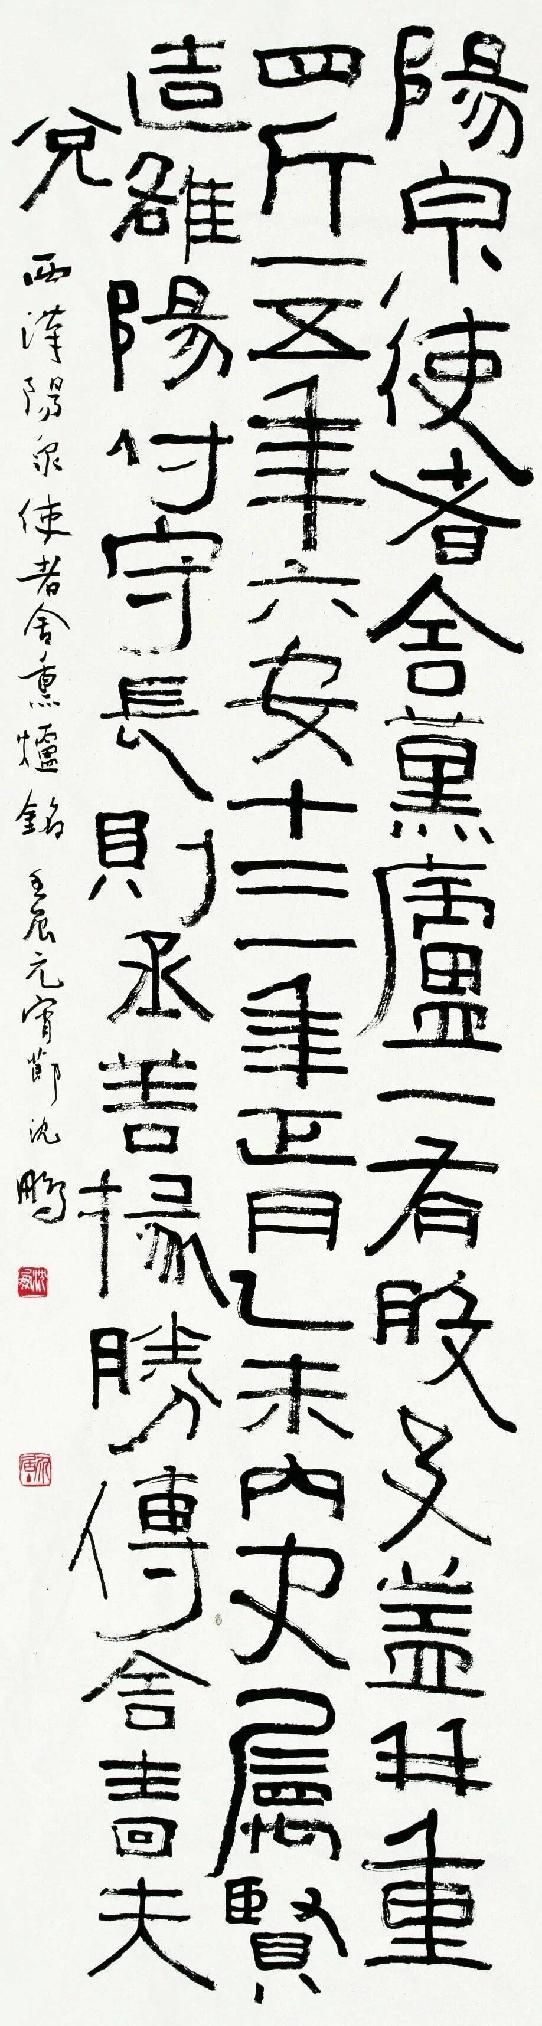 陽泉使者舍薰廬一有般及蓋并重
四斤一五年六安十三年正月乙未内史屬賢
造雒陽付守長則丞善掾勝傳舍嗇夫
兌
西漢陽泉使者舍熏爐銘 壬辰元宵節沈鵬